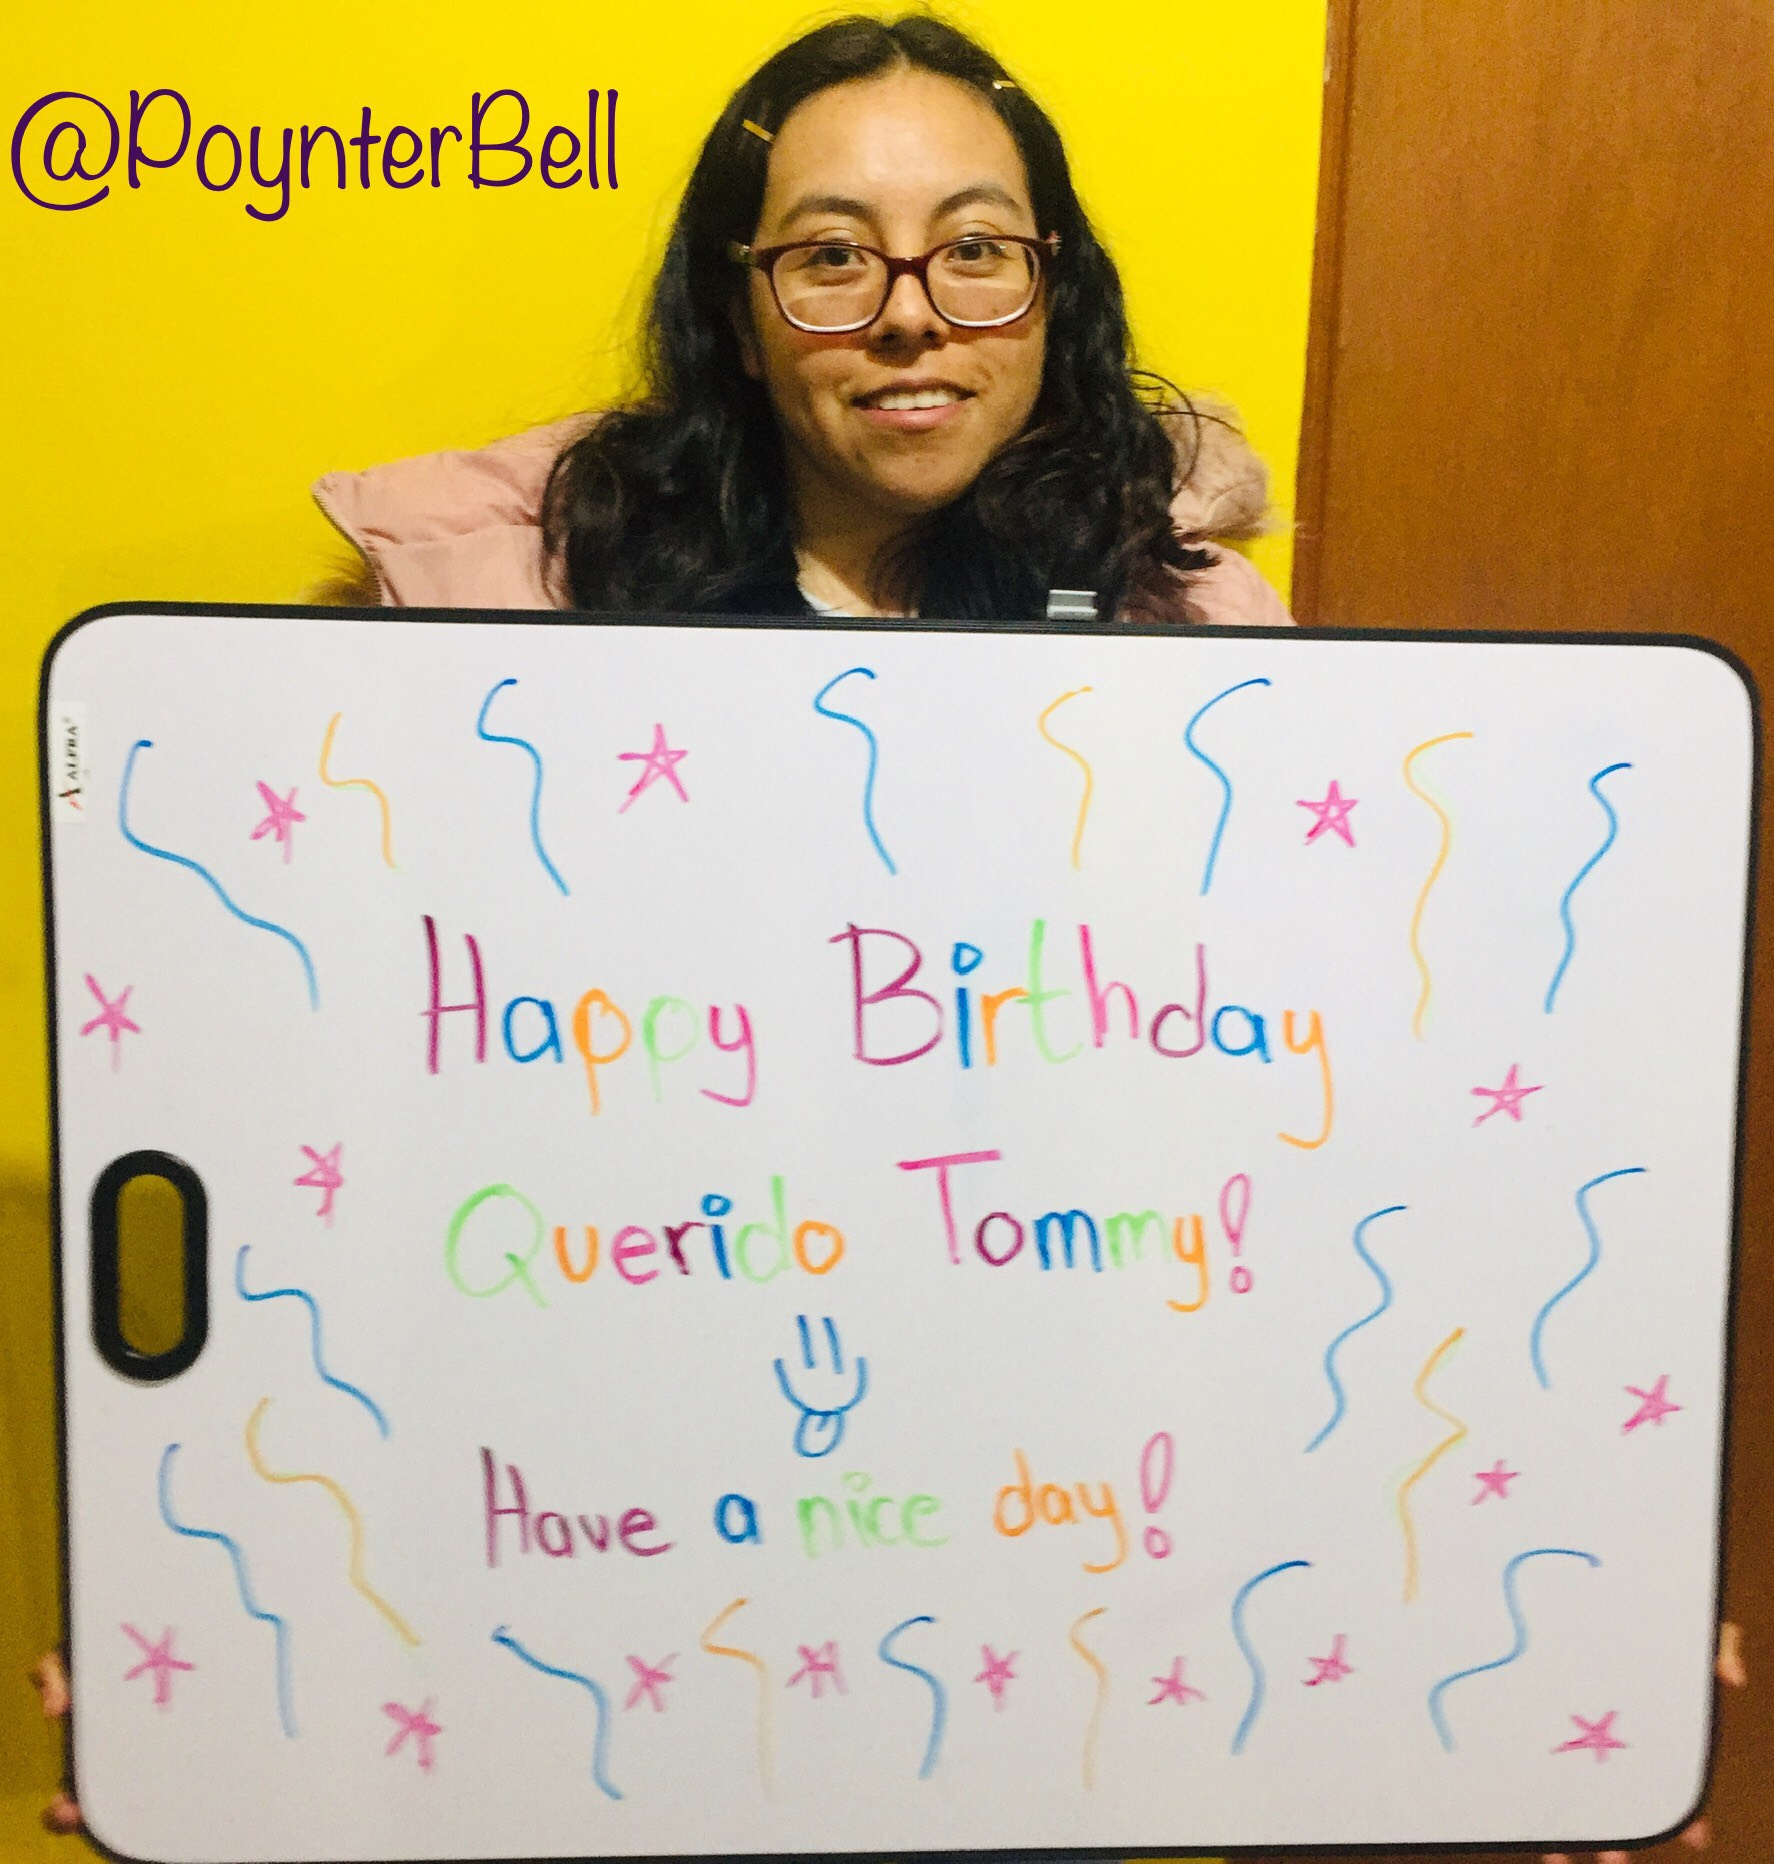 @PoynterBell
ALPHA®
Happy Birthday
Querido Tommy!
Have a nice day!